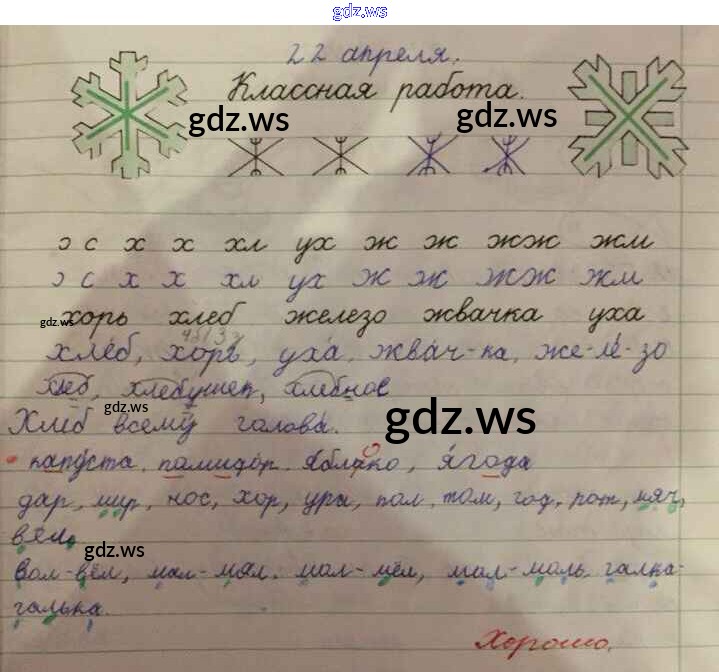 gdz.ws
22 апреля.
Классная работа.
gdz.ws gdz.ws
ɔ с х х хл ух ж ж жж жм
ɔ с х х хл ух ж ж жж жм
gdz.ws
хорь хлеб железо жвачка уха
хлеб, хорь, уха, жвач-ка, же-ле-зо
хлеб, хлебушек, хлебное
gdz.ws
Хлеб всему голова.
gdz.ws
капуста, помидор, яблоко, ягода
дар, мир, нос, хор, ура, пол, том, год, рот, мяч,
вёл.
gdz.ws
вол-вёл, мал-мял, мол-мёл, мал-моль, галка-
галька.
Хорошо.